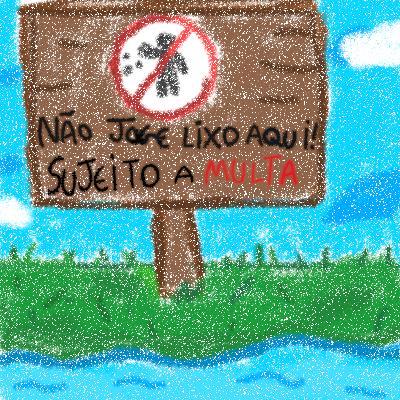 NÃO JOGE LIXO AQUI!
SUJEITO A MULTA